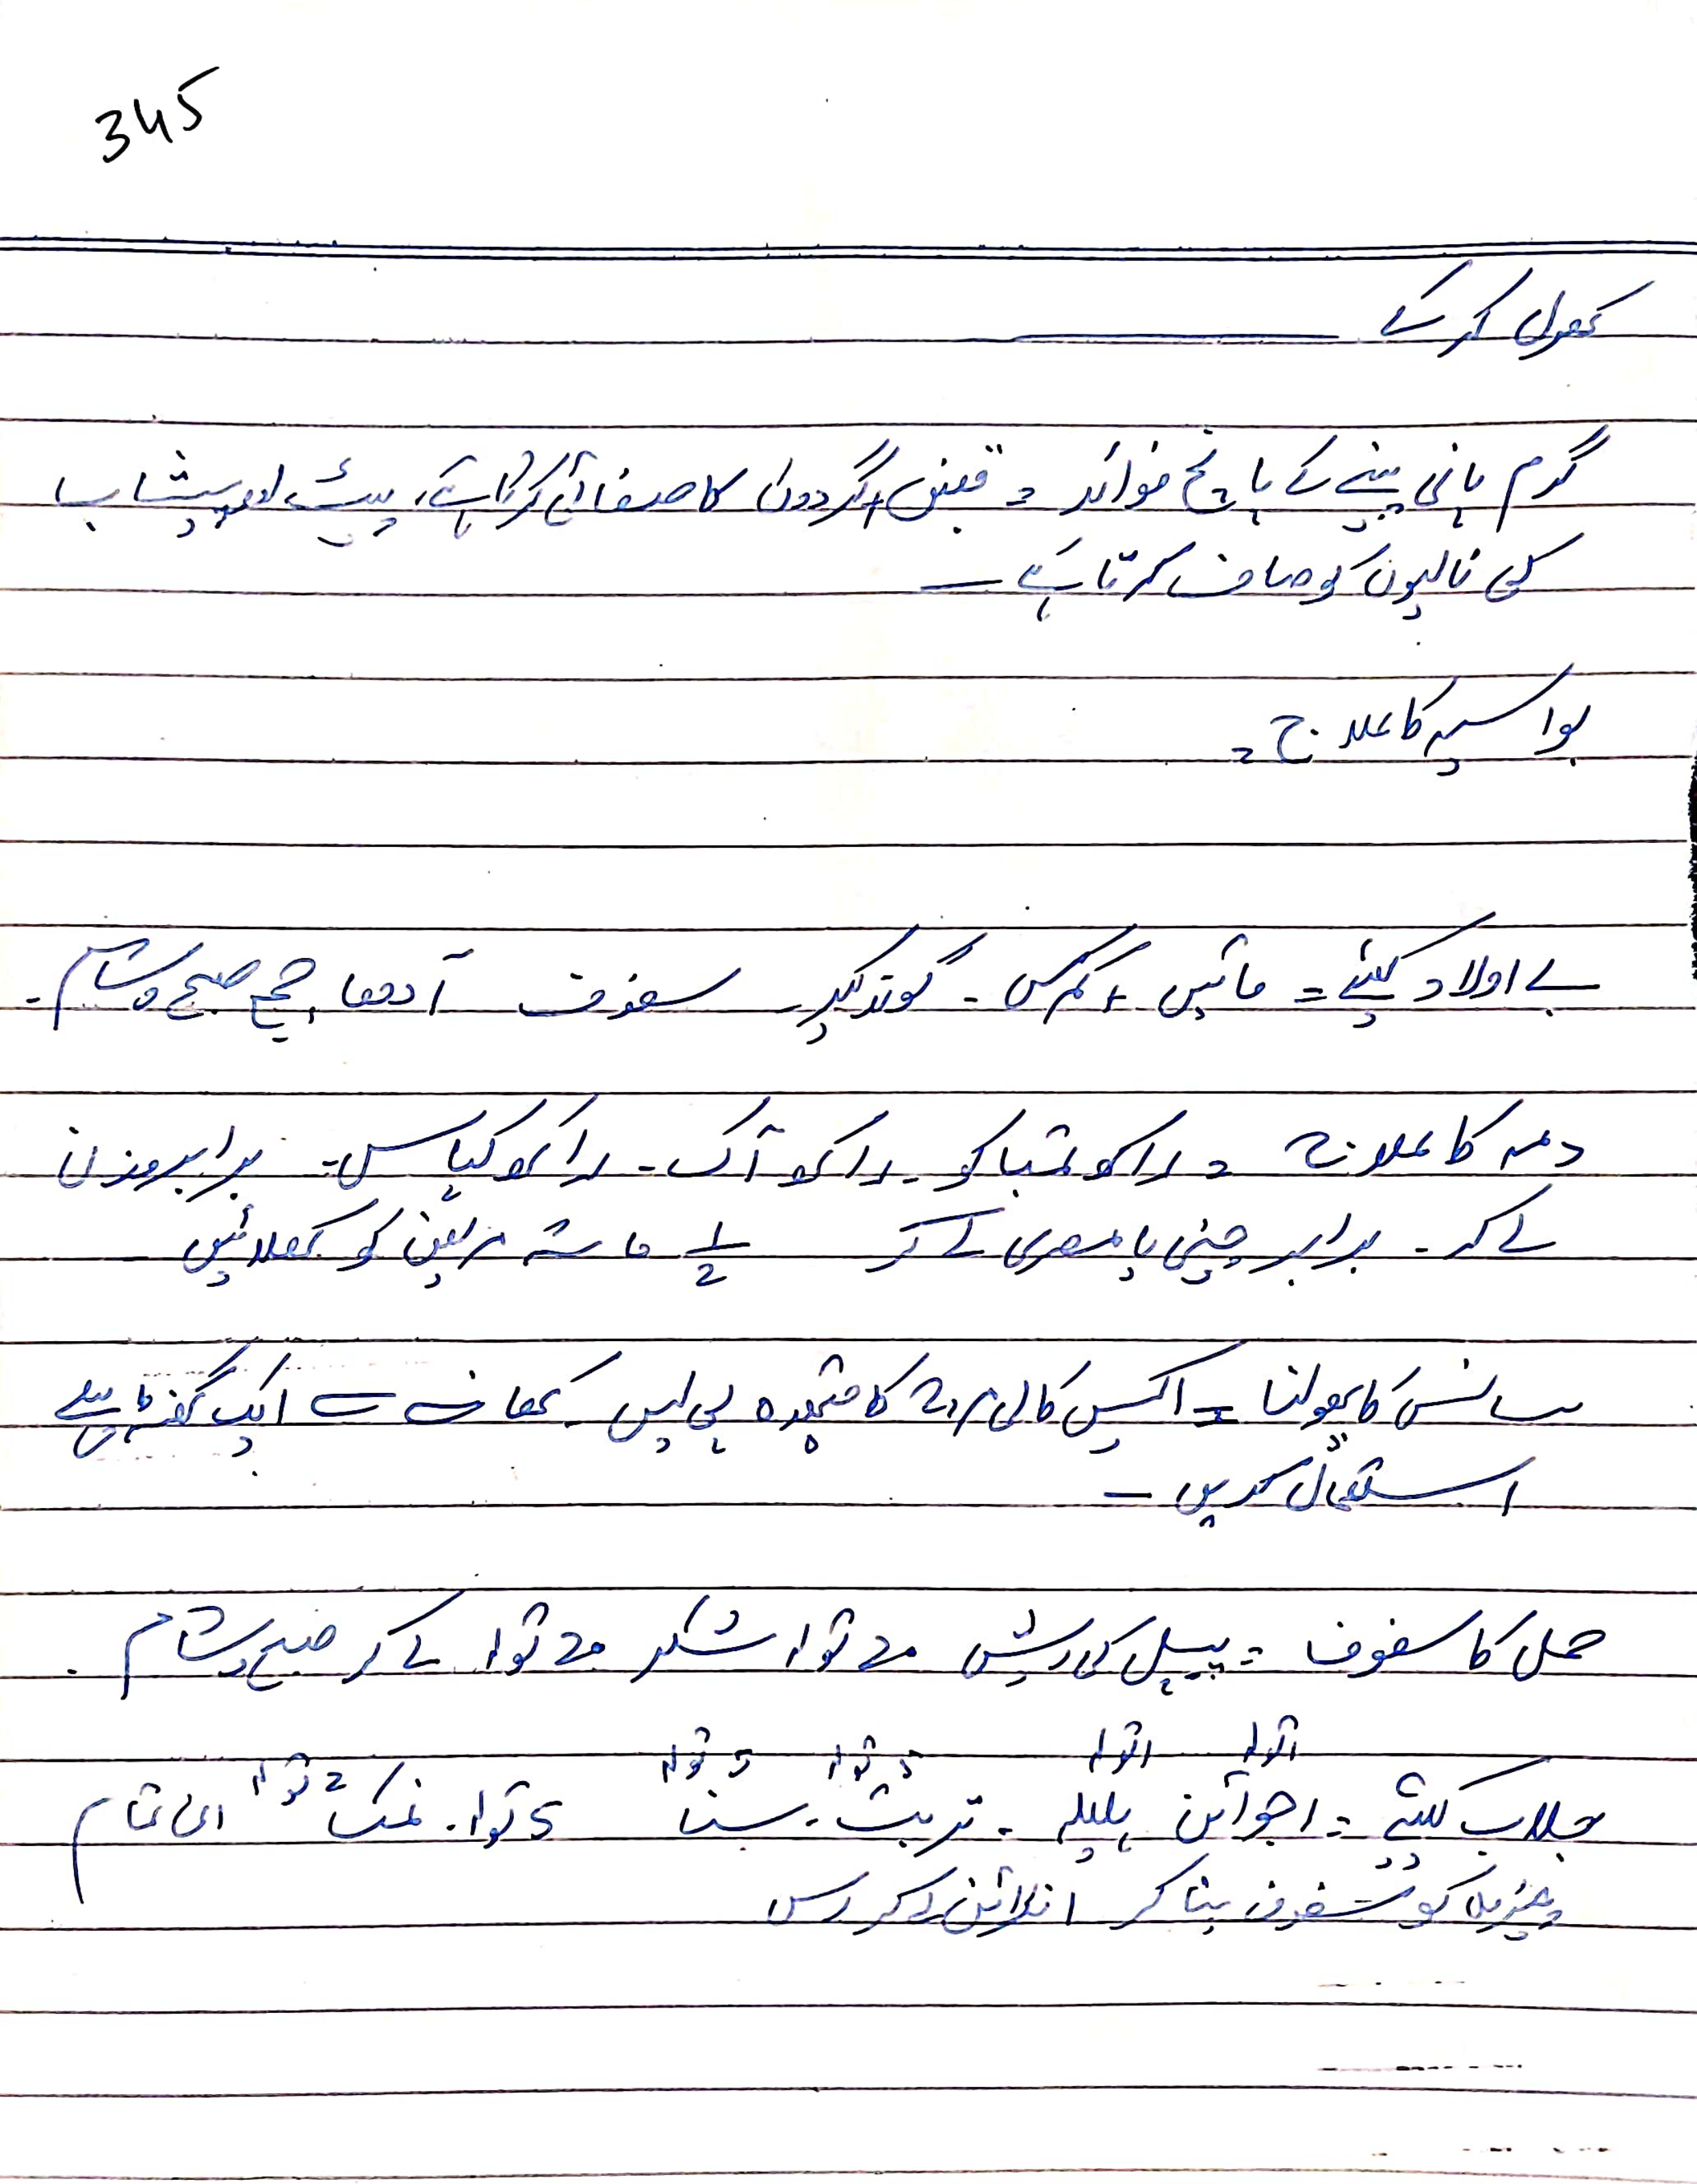 345
کھرل کر کے
گرم پانی پینے کے پانچ فوائد = قبض + گردوں کا صفائی کرتا ہے، پیٹ اور پیشاب
کی نالیوں کو صاف کرتا ہے ۔
بواسیر کا علاج =
بے اولاد کیلئے = مائیں + کمرکس ۔ گوند کیکر ۔ سفوف آدھا چمچ صبح و شام ۔
دمہ کا علاج = راکھ تمباکو ۔ راکھ آک ۔ راکھ کپاس ۔ برابر وزن
لے کر ۔ برابر چینی یا مصری لے کر 1/2 ماشہ مریض کو کھلائیں
سانس کا پھولنا = اکیس کالی مرچ کا قہوہ پی لیں ۔ کھانے سے ایک گھنٹہ پہلے
استعمال کریں ۔
حمل کا سفوف = پیپل کی ریش 20 تولہ شکر 20 تولہ لے کر صبح و شام ۔
1 تولہ 1 تولہ 5 تولہ 5 تولہ
جلاب کیلئے = اجوائن ہلیلہ ۔ تربت ۔ سنا 5 تولہ ۔ نمک 2 تولہ ان تمام
چیزوں کو سفوف بنا کر